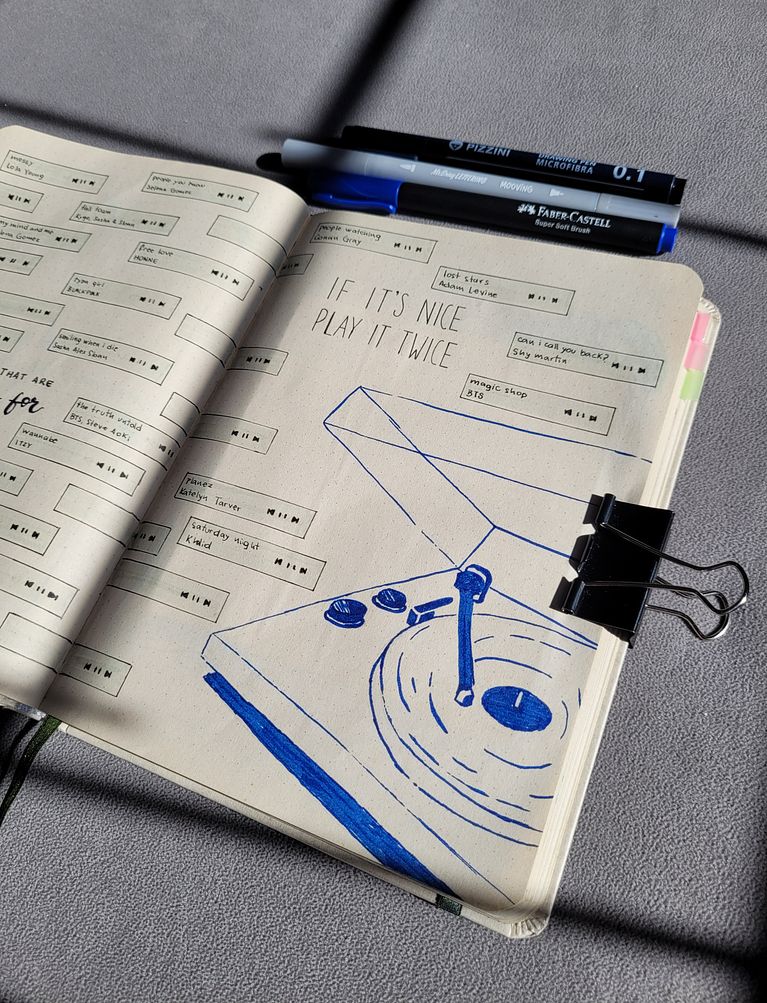 PIZZINI
DRAWING PEN
MICROFIBRA
0.1
MOOVING
FABER-CASTELL
Super Soft Brush
messy
Lola Young
people you know
Selena Gomez
fall town
my mind and me
Selena Gomez
free love
HONNE
typa girl
BLACKPINK
smiling when i die
Sasha Alex Sloan
THAT ARE
for
the truth untold
BTS, Steve Aoki
wannabe
ITZY
people watching
Conan Gray
lost stars
Adam Levine
IF IT'S NICE
PLAY IT TWICE
can i call you back?
Shy martin
magic shop
BTS
planez
Katelyn Tarver
saturday night
Khalid